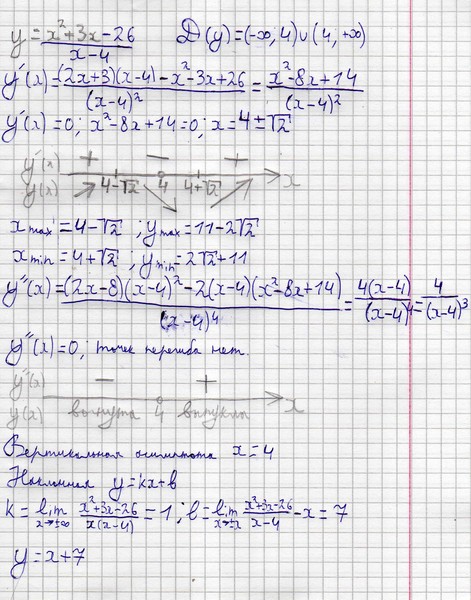 y = (x²+3x-26)/(x-4)   D(y)=(-∞, 4)∪(4, +∞)
y'(x) = ((2x+3)(x-4)-x²-3x+26)/(x-4)² = (x²-8x+14)/(x-4)²
y'(x)=0; x²-8x+14=0; x=4±√2
y'(x) + − +
y(x) ↗ 4-√2 ↘ 4 4+√2 ↗ x
x max = 4-√2; y max = 11-2√2
x min = 4+√2; y min = 2√2+11
y''(x) = ((2x-8)(x-4)²-2(x-4)(x²-8x+14))/(x-4)⁴ = 4(x-4)/(x-4)⁴ = 4/(x-4)³
y''(x)=0; точек перегиба нет.
y''(x) − +
y(x) вогнута 4 выпукла x
Вертикальная асимптота x=4
Наклонная y=kx+b
k = lim x→±∞ (x²+3x-26)/(x(x-4)) = 1; b = lim x→±∞ (x²+3x-26)/(x-4) - x = 7
y = x+7